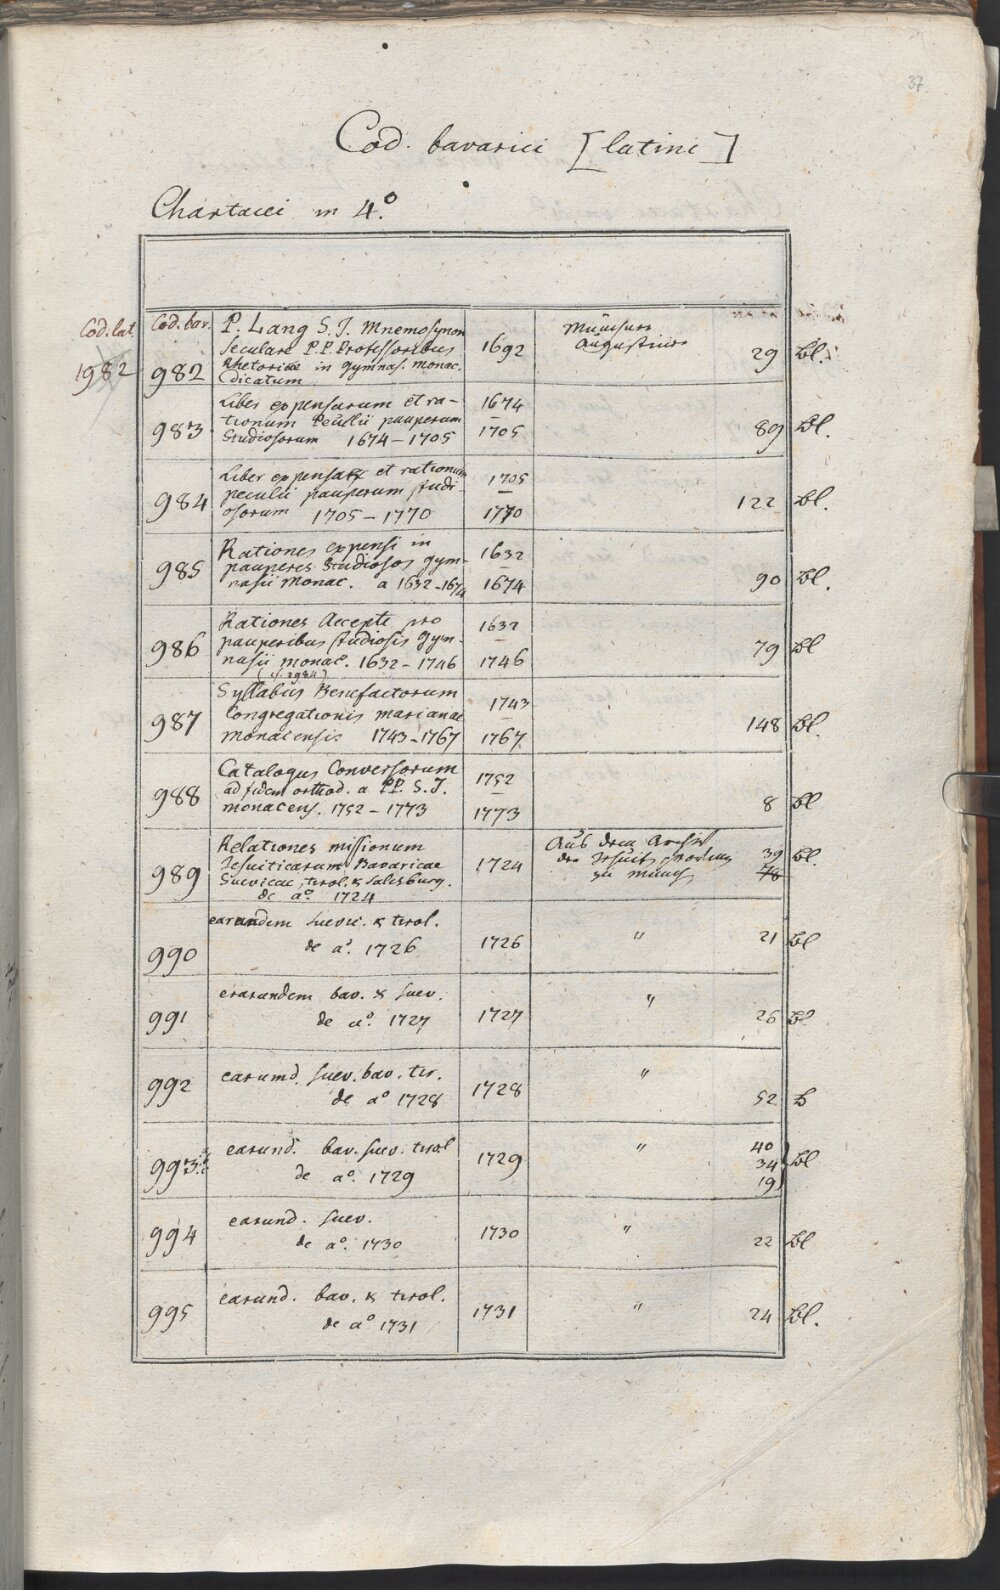 37
Cod. bavarici [latini]
Chartacei in 4.º
Cod. lat. Cod. bav.
1982 982 P. Lang S. J. Mnemosynon
seculare P.P. Professoribus
Rhetoricae in gymnas. monac.
dicatum 1692 München
Augustiner 29 Bl.
983 Liber expensarum et ra-
tionum Peculii pauperum
Studiosorum 1674-1705 1674
-
1705 89 Bl.
984 Liber expensarum et rationum
peculii pauperum studi-
osorum 1705-1770 1705
-
1770 122 Bl.
985 Rationes expensi in
pauperes Studiosos gym-
nasii Monac. a 1632-1674 1632
-
1674 90 Bl.
986 Rationes Accepti pro
pauperibus studiosis gym-
nasii monac. 1632-1746 1632
1746 79 Bl
987 Syllabus Benefactorum
Congregationis marianae
monacensis 1743-1767 1743
-
1767 148 Bl.
988 Catalogus Conversorum
ad fidem orthod. a PP. S. J.
monacens. 1752-1773 1752
-
1773 8 Bl
989 Relationes missionum
Jesuiticarum Bavaricae
Suevicae, tirol. & Salisburg.
de aº. 1724 1724 Aus dem Archiv
der Jesuit. provinz
zu Münch. 39 Bl.
78
990 earundem suevic. & tirol.
de aº. 1726 1726 " 21 Bl
991 erarundem bav. & suev.
de aº. 1727 1727 " 26 Bl
992 earumd. suev. bav. tir.
de aº 1728 1728 " 52 B
993. earund. bav. suev. tirol
de aº. 1729 1729 " 40
34 Bl
19
994 earund. suev.
de aº. 1730 1730 " 22 Bl
995 earund. bav. & tirol.
de aº 1731 1731 " 24 Bl.